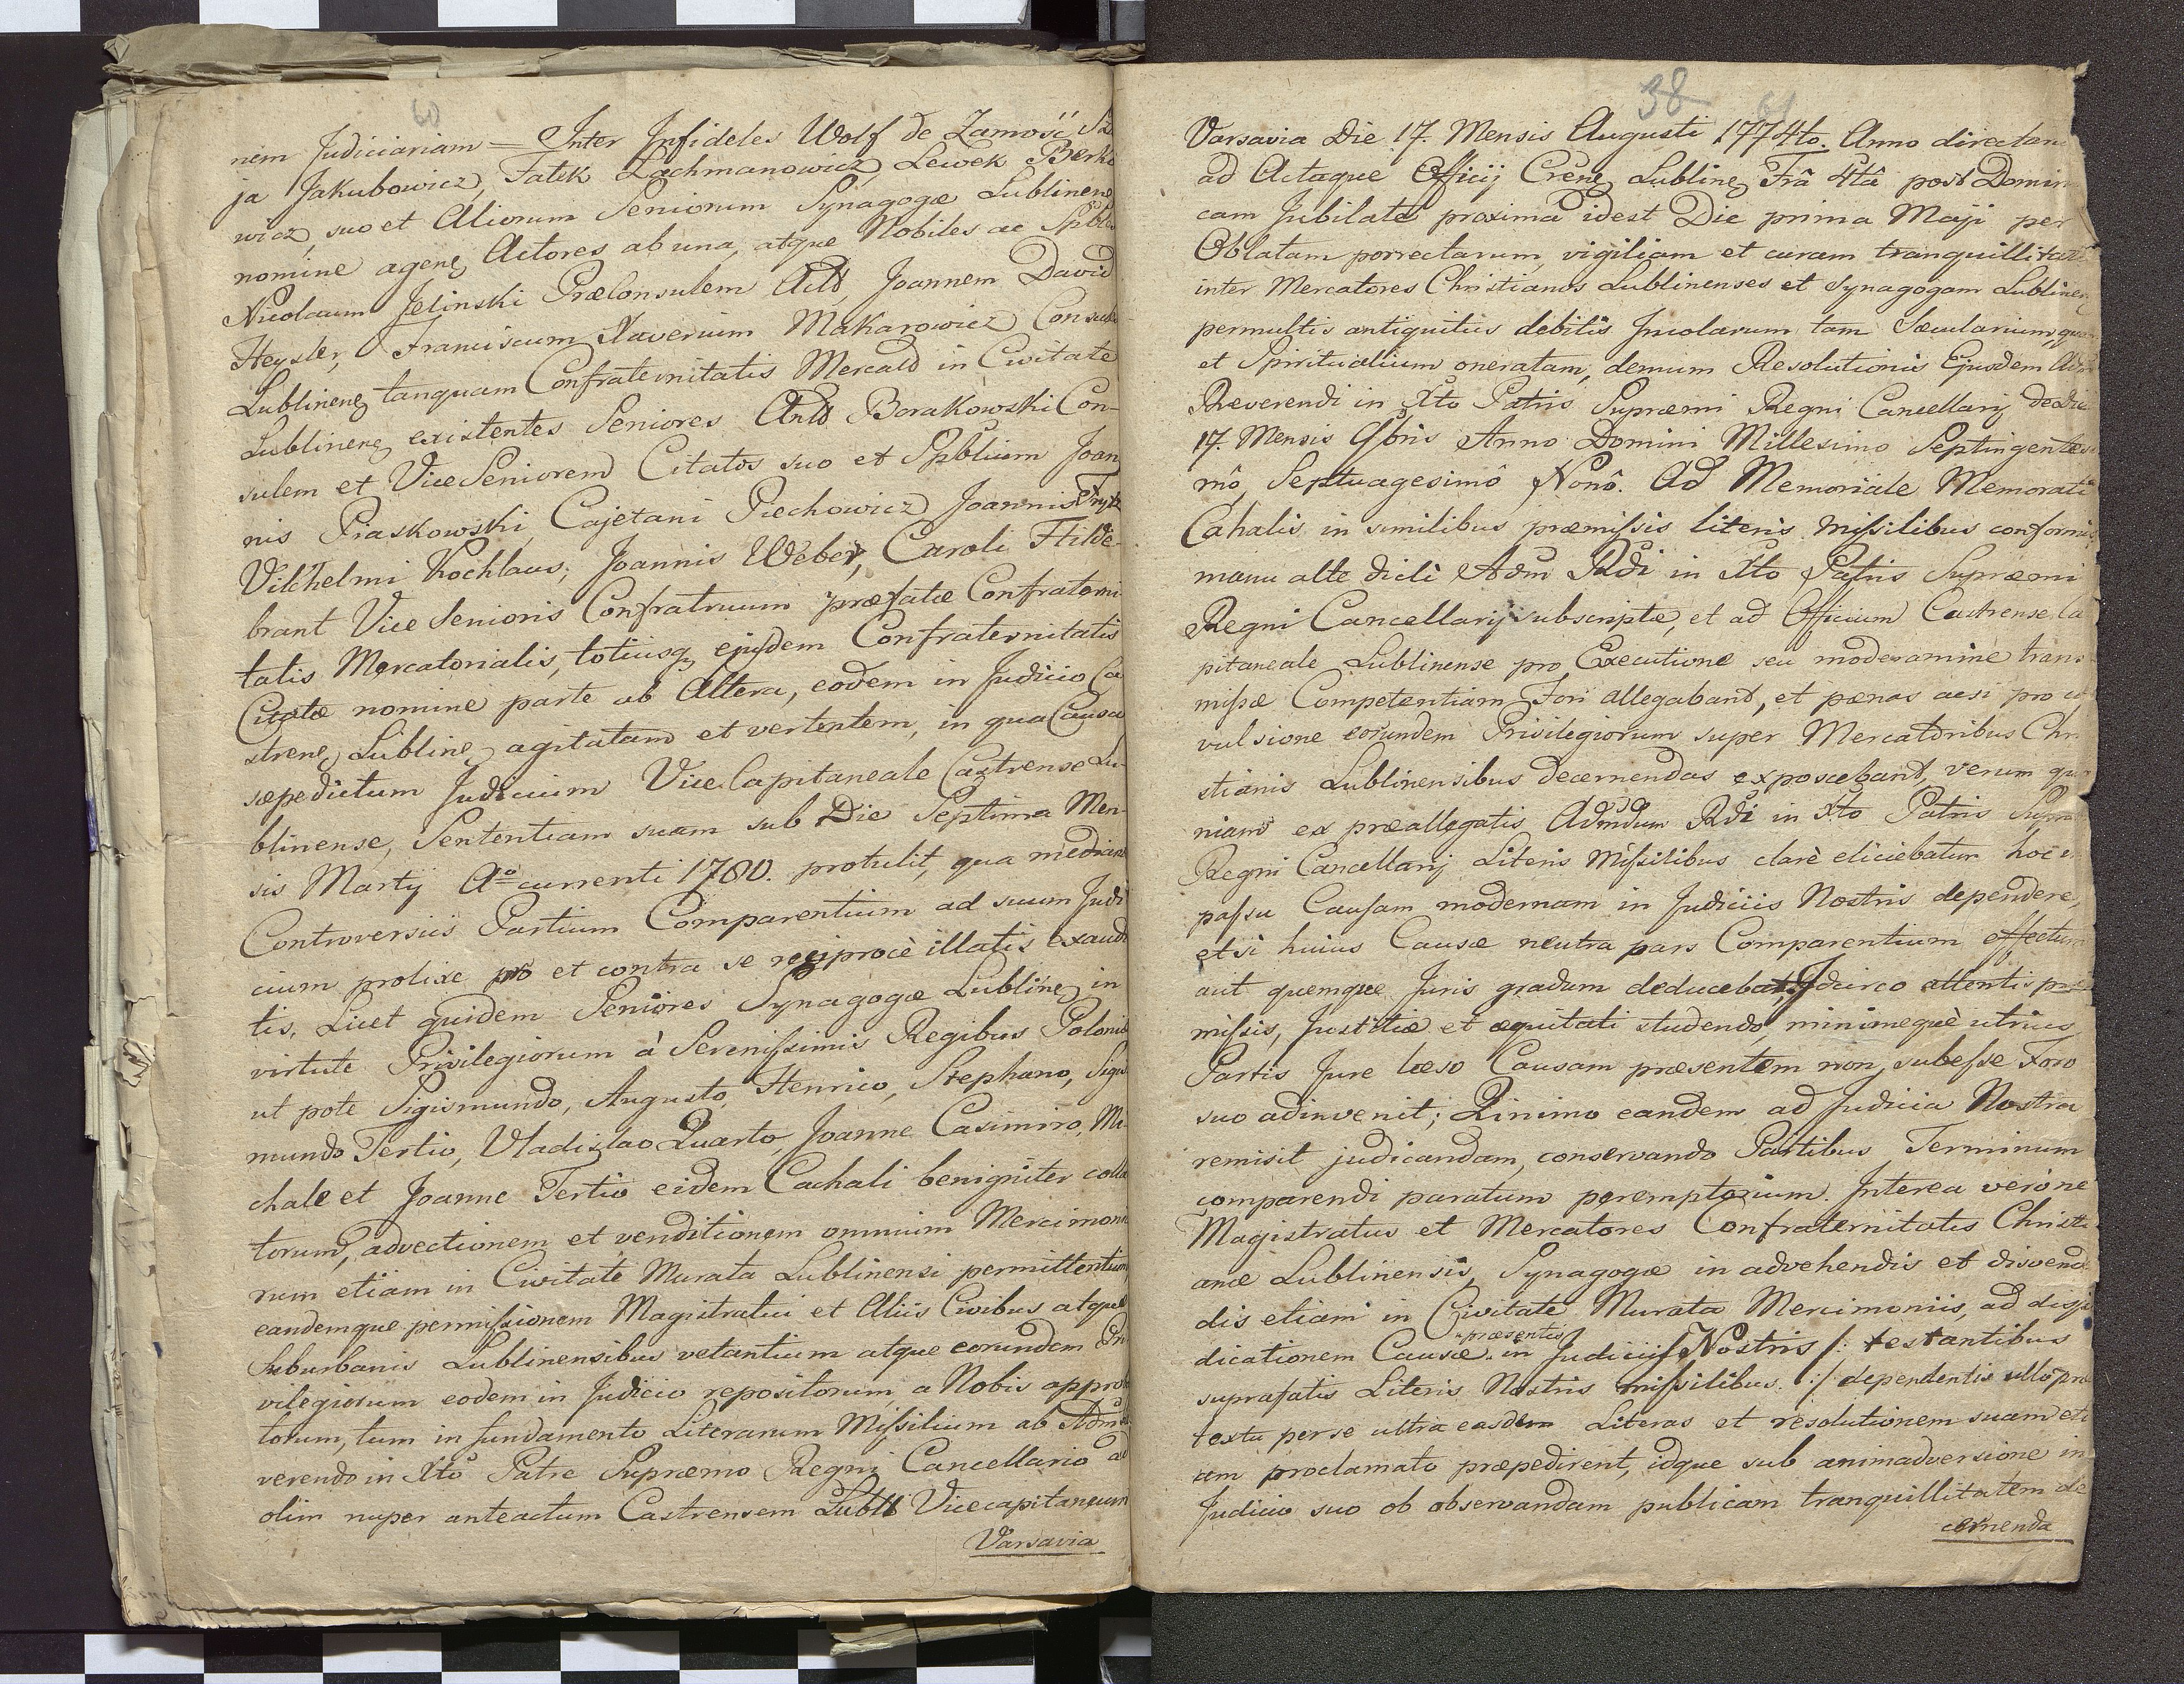 60
nem Judiciariam = Inter Infideles Wolf de Zamość
ja Jakubowicz, Fatek Lachmanowicz Lewek Berko
wicz, suo et Aliorum Seniorum Synagogæ Lublinen
nomine agen Actores ab una, atque Nobiles ac Spbles
Nicolaum Jelinski Præconsulem Actt, Joannem David
Heysler, Franciscum Xaverium Makarowicz Consules
Lublinen tanquam Confraternitatis Mercatt in Civitate
Lublinen existentes Seniores Antt Borakowski Con-
sulem et ViceSeniorem Citatos suo et Spblium Joan
nis Piaskowski, Cajetani Piechowicz Joannis
Vilchelmi Kochlaus, Joannis Weber, Caroli Hilde-
brant Vice Senioris Confratruum præfatæ Confraterni
tatis Mercatorialis, totiusq ejusdem Confraternitatis
Citatæ nomine parte ab Altera, eodem in Judicio Ca
stren Lublinen agitatam et vertentem, in qua Causa
sæpedictum Judicium ViceCapitaneale Castrense Lu-
blinense, Sententiam suam sub Die Septima Men-
sis Martij Ao currenti 1780. protulit, qua median
Controversiis Partium Comparentium ad suum Judi
cium prolixe pro et contra se reciprocè illatis exaudi
tis, Licet quidem Seniores Synagogæ Lublinen in
virtute Privilegiorum à Serenissimis Regibus Poloniæ
ut pote Sigismundo, Augusto, Henrico, Stephano, Sigis
mundo Tertio, Vladislao Quarto, Joanne Casimiro, Mi
chale et Joanne Tertio eidem Cachali benigniter colla
torum, advectionem et venditionem omnium Mercimonio
rum etiam in Civitate Murata Lublinensi permittentium
eandemque permissionem Magistratui et Aliis Civibus atque
Suburbanis Lublinensibus vetantium atque eorundem Pri
vilegiorum eodem in Judicio repositorum, a Nobis appro
torum, tum in fundamento Literarum Missilium ab Adm
verendo in Xto Patre Supremo Regni Cancellario ad
olim nuper anteactum Castrensem Lubll Vicecapitaneum
Varsavia
38 61
Varsavia Die 17. Mensis Augusti 1774to. Anno directam
ad Actaque Officij Crene Lublinen Frâ 4tâ post Domin
cam Jubilate proxima idest Die prima Maji per
Oblatam porrectarum, vigiliam et curam tranquillitatis
inter Mercatores Christianos Lublinenses et Synagogam Lublinen
permultis antiquitus debitis Incolarum tam Sæcularium, quam
et Spiritualium oneratam, demum Resolutionis Ejusdem Adm
Reverendi in Xto Patris Supræmi Regni Cancellarij de Die
17. Mensis Qbris Anno Domini Millesimo Septingentesi
mô, Septuagesimô Nonô. Ad Memoriale Memorati
Cahalis in similibus præmissis literis missilibus conformis,
manu alte dicti Adm Rdi in Xto Patris Supræmi
Regni Cancellarij subscriptæ, et ad Officium Castrense Ca
pitaneale Lublinense pro Executione seu moderamine trans
missæ Competentiam Fori allegabant, et pænas acsi pro co
vulsione eorundem Privilegiorum super Mercatoribus Chri
stianis Lublinensibus decernendas exposcebant, verum quo
niam ex præallegatis Admdum Rdi in Xto Patris Supræ
Regni Cancellarij Literis Missilibus clarè eliciebatur hoc in
passu Causam modernam in Judiciis Nostris dependere,
etsi huius Causæ neutra pars Comparentium effectum
aut quemque Juris gradum deducebat, Idcirco attentis præ
missis, Justitiæ et æquitati studendo, minimequè utrius
Partis Jure læso Causam præsentem non subesse Foro
suo adinvenit; Quinimo eandem ad Judicia Nostra
remisit judicandam, conservando Partibus Terminum
comparendi paratum peremptorium. Interea verò ne
Magistratus et Mercatores Confraternitatis Christi
anæ Lublinensis, Synagogæ in advehendis et disvend
dis etiam in Civitate Murata Mercimoniis, ad disju
præsentis
dicationem Causæ in Judiciis Nostris /: testantibus
suprafatis Literis Nostris missilibus :/ dependentis ullo præ
textu per se ultra easdem Literas et resolutionem suam eti
am proclamato præpedirent, idque sub animadversione in
Judicio suo ob observandam publicam tranquillitatem de
cernenda